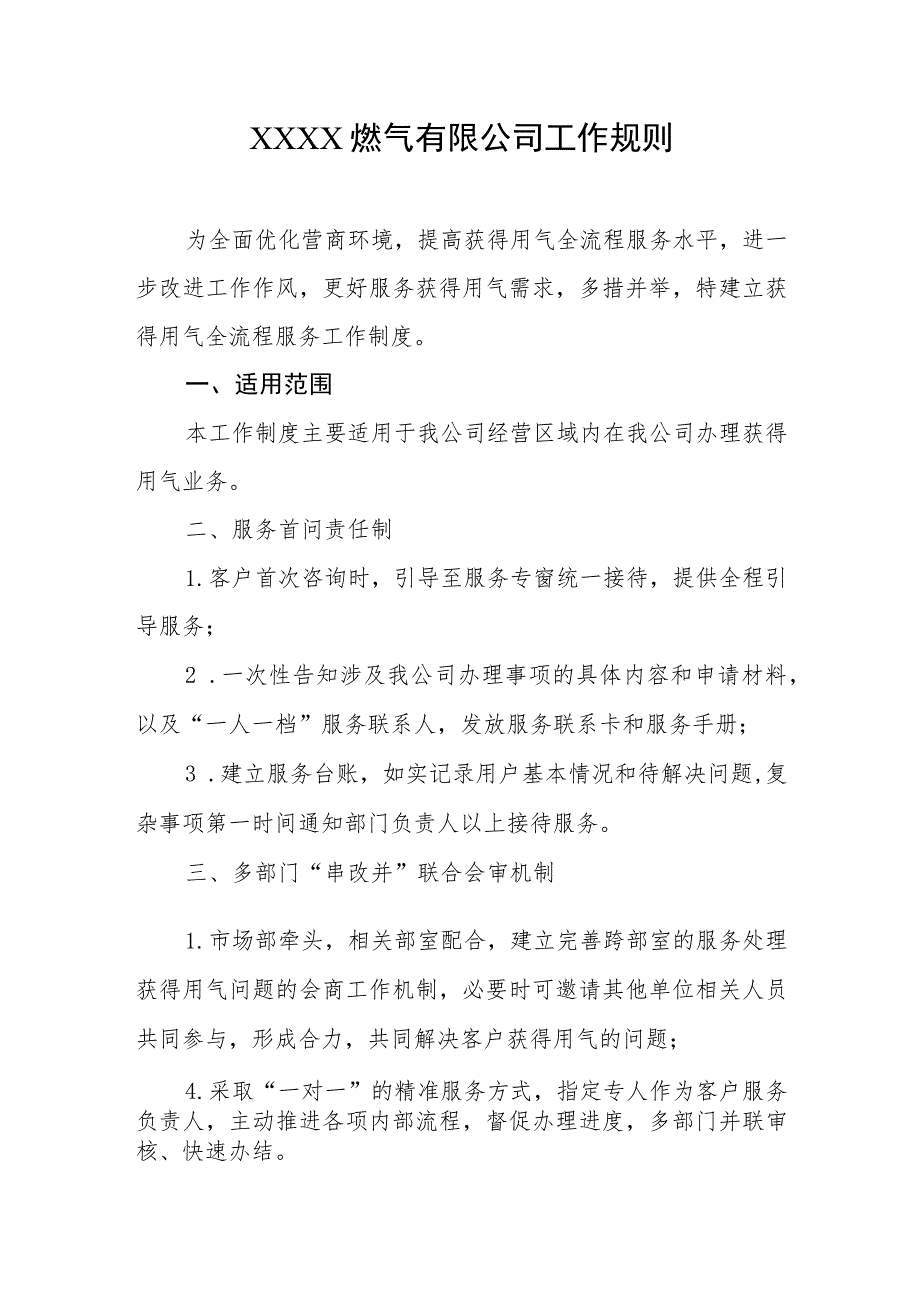 XXXX燃气有限公司工作规则
为全面优化营商环境，提高获得用气全流程服务水平，进一
步改进工作作风，更好服务获得用气需求，多措并举，特建立获
得用气全流程服务工作制度。
一、适用范围
本工作制度主要适用于我公司经营区域内在我公司办理获得
用气业务。
二、服务首问责任制
1.客户首次咨询时，引导至服务专窗统一接待，提供全程引
导服务；
2 .一次性告知涉及我公司办理事项的具体内容和申请材料，
以及“一人一档”服务联系人，发放服务联系卡和服务手册；
3 .建立服务台账，如实记录用户基本情况和待解决问题,复
杂事项第一时间通知部门负责人以上接待服务。
三、多部门“串改并”联合会审机制
1.市场部牵头，相关部室配合，建立完善跨部室的服务处理
获得用气问题的会商工作机制，必要时可邀请其他单位相关人员
共同参与，形成合力，共同解决客户获得用气的问题；
4.采取“一对一”的精准服务方式，指定专人作为客户服务
负责人，主动推进各项内部流程，督促办理进度，多部门并联审
核、快速办结。